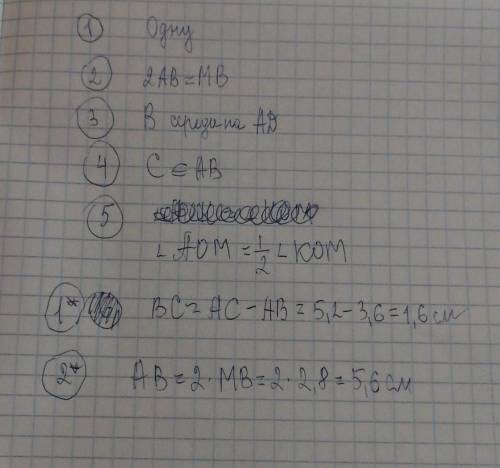 1 Одну
2 2AB=MB
3 B середина AD
4 C∈AB
5
∠AOM=½∠KOM
1* BC=AC-AB=5,2-3,6=1,6 см
2* AB=2·MB=2·2,8=5,6 см